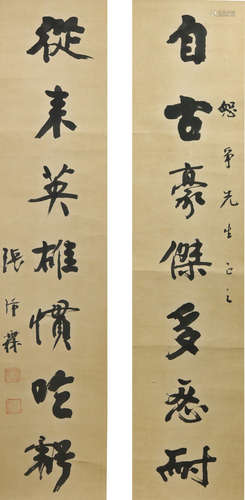 自古豪傑多忍耐
恕爭先生正之
從來英雄慣吃虧
張瀞釋